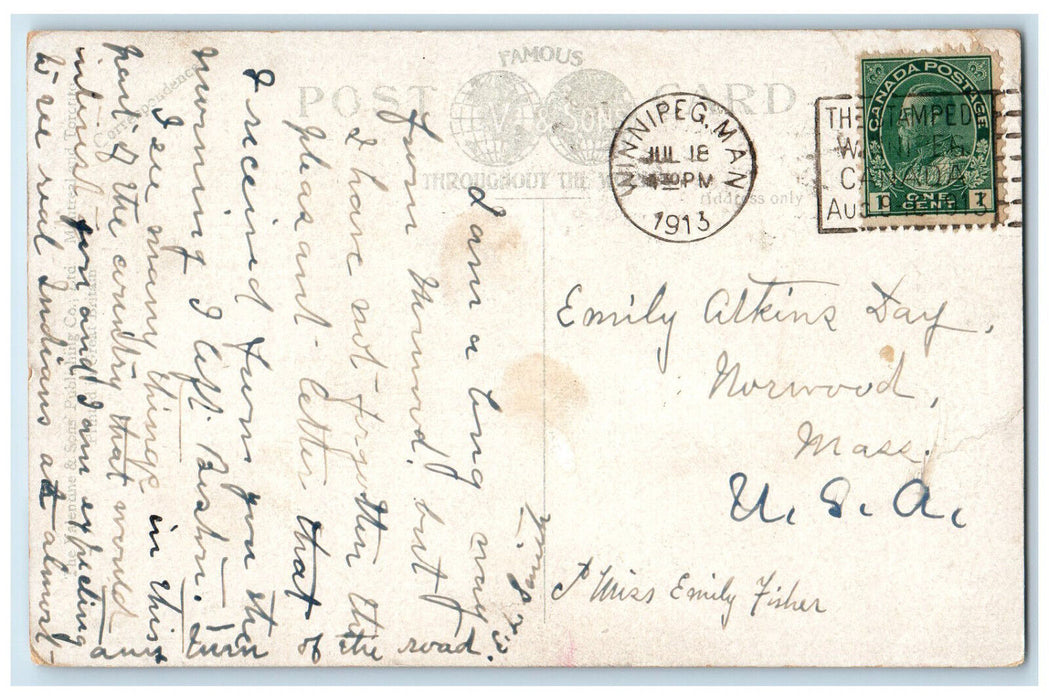 FAMOUS
POST CARD
V & SONS
THROUGHOUT THE
Address only
Correspondence
WINNIPEG, MAN.
JUL 18
430 PM
1913
THE STAMPEDE
WINNIPEG
CANADA
AUG 9 1913
CANADA POSTAGE
1 ONE CENT 1
I am a long way
from Norwood, but I
have not forgotten the
pleasant letter that
I received from you the
morning I left Boston.
I see many things in this
part of the country that would
interest you and I am expecting
to see real Indians at almost
any turn of the road.
Emily Atkins Day,
Norwood,
Mass.
U. S. A.
Miss Emily Fisher
Valentine & Sons Publishing Co., Ltd. Montreal and Toronto